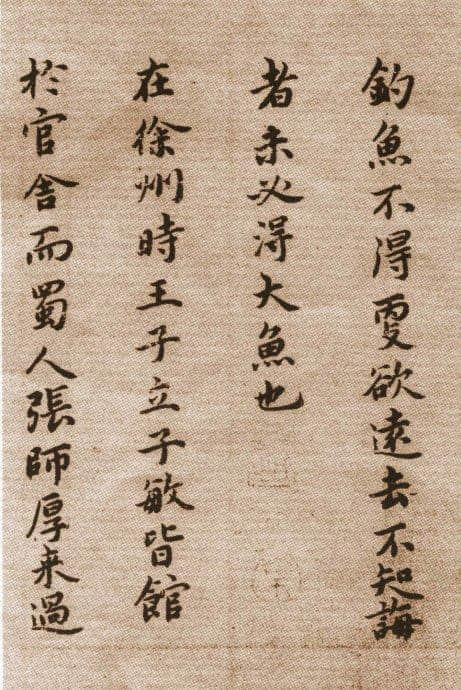 釣魚不得更欲遠去不知誨
者未必得大魚也
在徐州時王子立子敏皆館
於官舍而蜀人張師厚来過